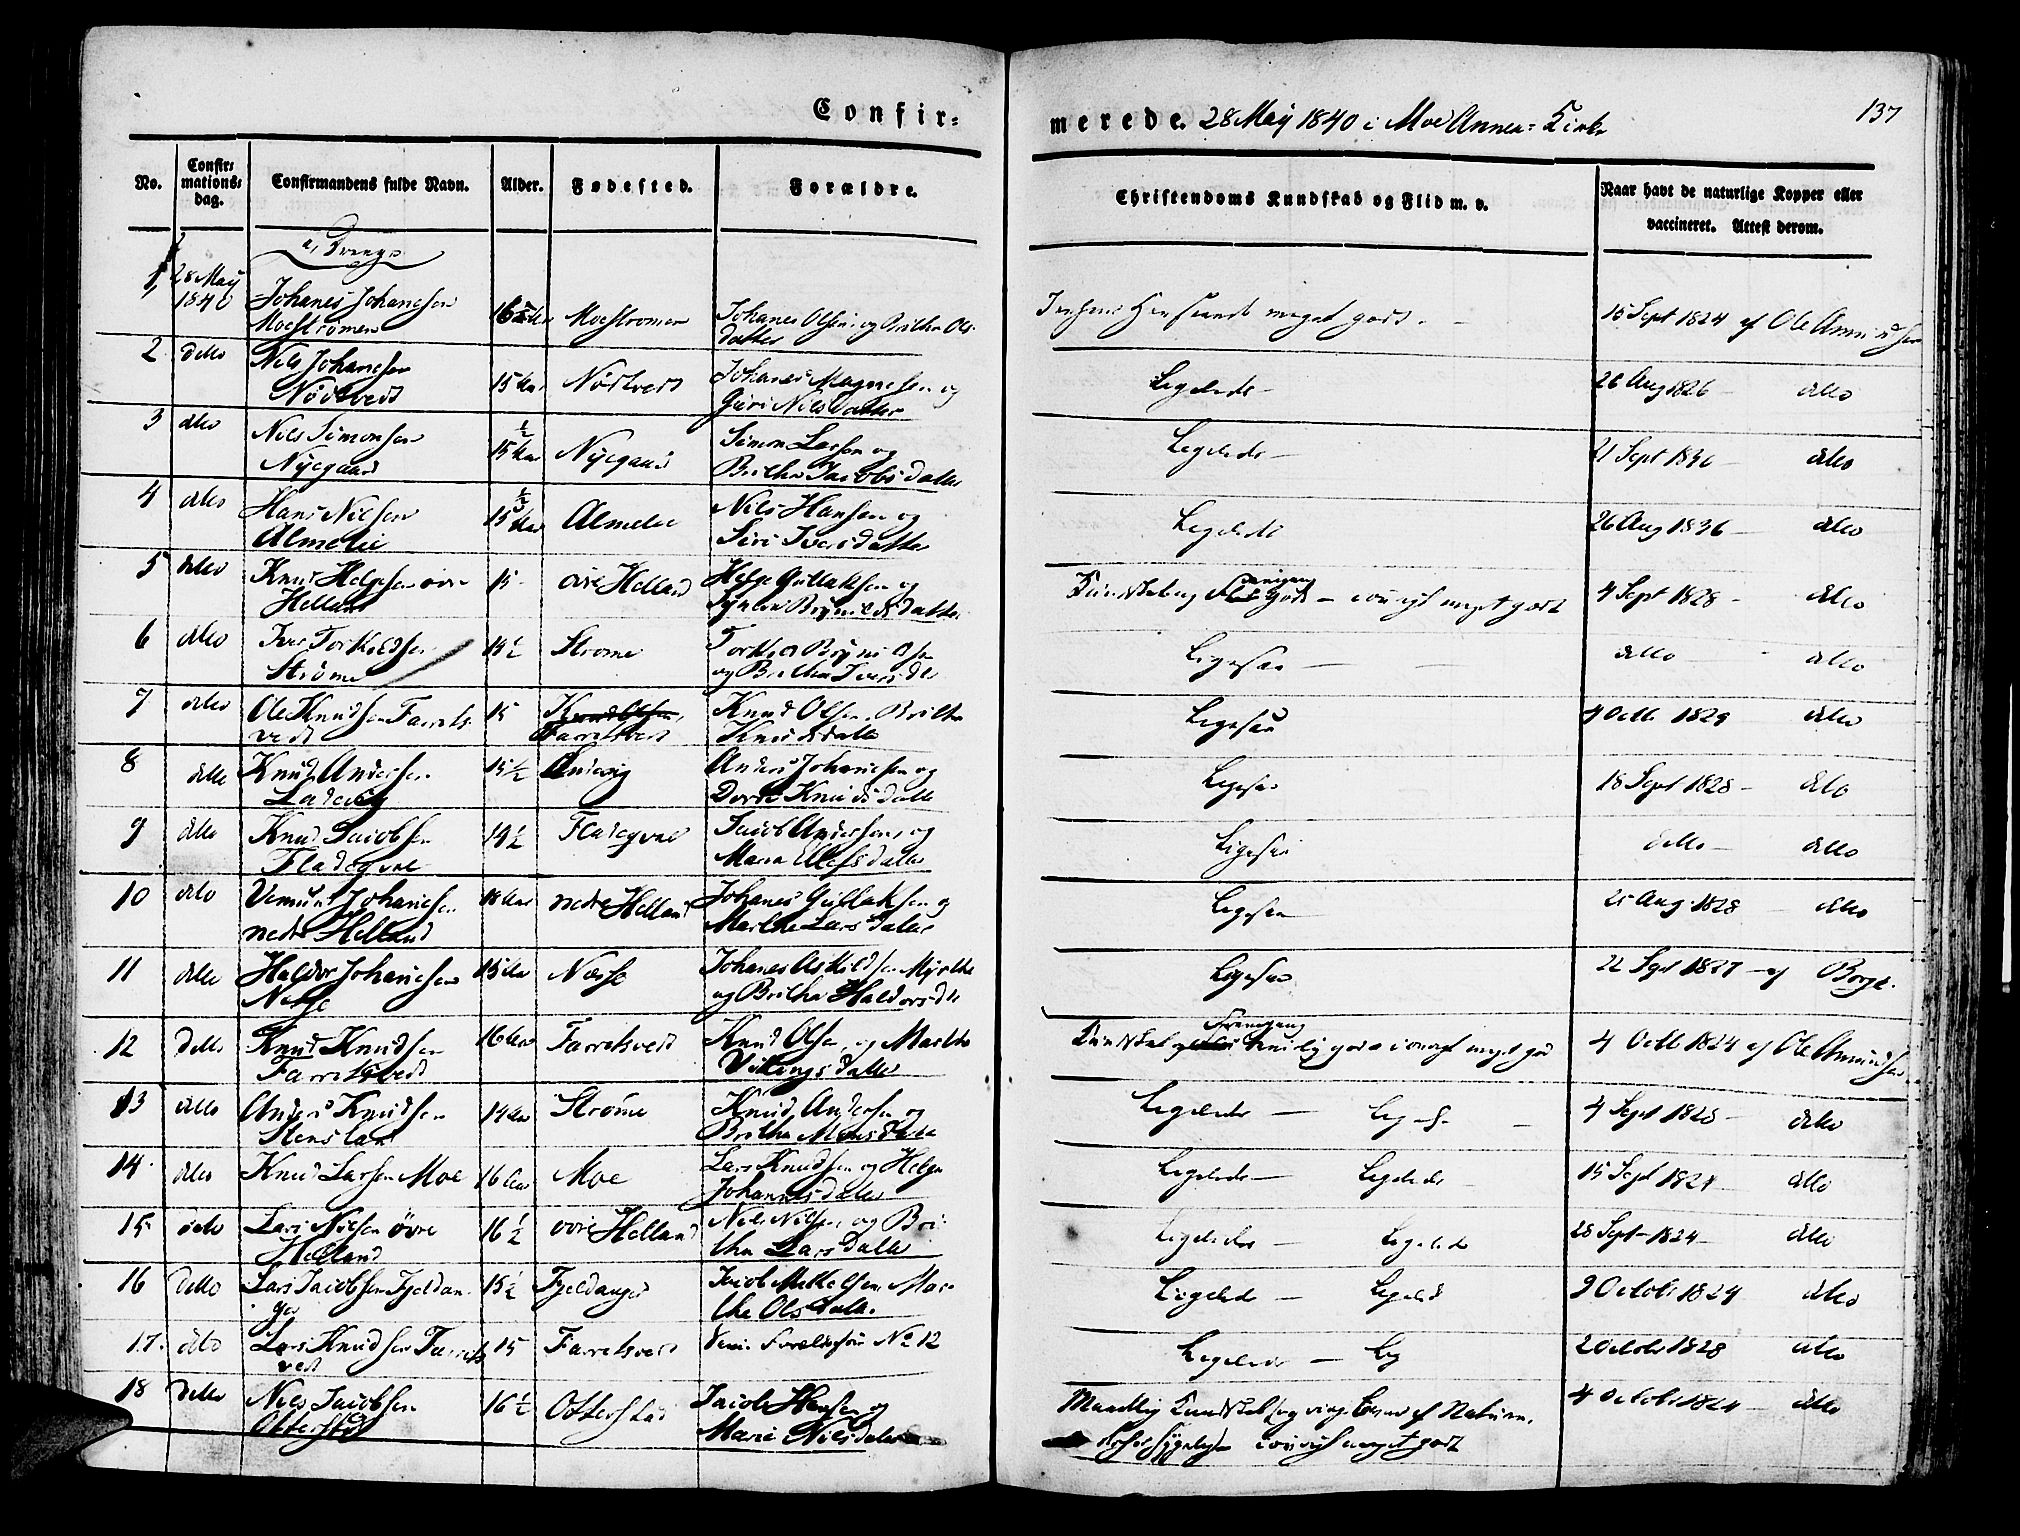 Confir=
merede. 28 May 1840 i Moe Annex= Kirke
137
No. Confirmations-dag. Confirmandens fulde Navn. Alder. Fødested. Forældre. Christendoms Kundskab og Flid m. v. Naar havt de naturlige Kopper eller vaccineret. Attest derom.
a, Drenge
1, 28 May 1840 Johanes Johanesen Moeströmen Moeströmen Johanes Olsen og Brithe Olsdatter meget godt. 15 Sept 1824 af Ole Amundsen
2 ditto Nils Johanesen Nödtvedt 15 Aar Nödtvedt Johanes Magnesen og Guri Nilsdatter Ligeledes 26 Aug 1826 ditto
3 ditto Nils Simonsen Nÿegaard 15 1/2 Aar Nÿegaard Simon Larsen og Brithe Jacobsdatter Ligeledes 21 Sept 1836 ditto
4 ditto Hans Nilsen Almelie 15 1/2 Aar Almelie Nils Hansen og Siri Iversdatter Ligeledes 26 Aug 1836 ditto
5 ditto Knud Helgesen övre Helland 15 övre Helland Helge Gullaksen og Brÿnildsdatter Kundskab og Fremgang god iövrigt meget godt 4 Sept 1828 ditto
6 ditto Iver Torkildsen Ströme 14 1/2 Ströme Torkild Brÿnildsen og Brithe Iversdr Ligesaa ditto ditto
7 ditto Ole Knudsen Farretsvedt 15 Knud Olsen, Farretsvedt Knud Olsen, Brithe Knudsdatter Ligesaa 4 Octb 1829 ditto
8 ditto Knud Andersen Ladevig 15 1/2 Ladevig Anders Johanesen og Dorte Knudsdatter Ligesaa 18 Sept 1828 ditto
9 ditto Knud Jacobsen Fladeqval 14 1/2 Fladeqval Jacob Andersen og Maria Ellefsdatter Ligesaa ditto ditto
10 ditto Vemund Johanesen nedre Helland Aar nedre Helland Johanes Gullaksen og Marthe Larsdatter Ligesaa 25 Aug 1828 ditto
11 ditto Haldor Johanesen Nesse 15 Aar Nesse Johanes Askildsen Myrthe og Brithe Haldorsdr Ligesaa 22 Sept 1827 af Borge.
12 ditto Knud Knudsen Farretsvedt 16 Aar Farretsvedt Knud Olsen, og Marthe Vikingsdatter Kundskab og Fremgang god iövrigt meget god 4 Octb 1824 af Ole Amundsen
13 ditto Anders Knudsen Stensland 14 Aar Ströme Knud Andersen og Brithe Monsdatter Ligeledes 4 Sept 1828 ditto
14 ditto Knud Larsen Moe 16 Aar Moe Lars Knudsen og Helge Johannesdatter Ligeledes Ligeledes 15 Sept 1824 ditto
15 ditto Lars Nilsen övre Helland 16 1/2 övre Helland Nils Nilsen og Brithe Larsdatter Ligeledes Ligeledes 28 Sept 1824 ditto
16 ditto Lars Jacobsen Fjeldanger 15 1/2 Fjeldanger Jacob Mikkelsen Marthe Olsdatter Ligeledes Ligeledes 9 October 1824 ditto
17. ditto Lars Knudsen Farretsvedt 15 Farretsvedt No 12 Ligeledes Lig 2 October 1828 ditto
18 ditto Nils Jacobsen Otterstad 16 1/2 Otterstad Jacob Hansen og Marie Nilsdatter Maadelig Kundskab og ringe af Naturen, iövrigt meget godt 4 October 1824 ditto